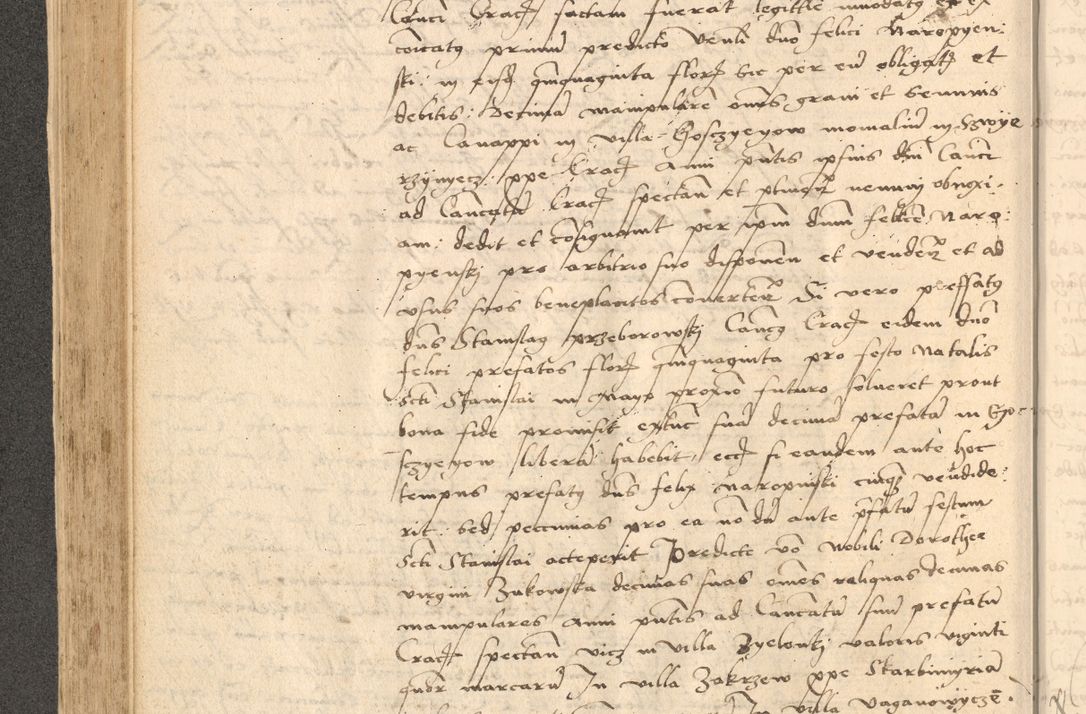 Canci Crac factam fuerat legittie
coicatus primu predicto Venli dno felici Naropyen:
ski: in quinquaginta flor sic per eu obligat et
debitis: Decima manipulare omis grani et seminis
ac Canappi in villa Goszyeyow momaliu in Szwye
rzynyecz: ppe Crac Anni pntis ipsius dni Canci
ad Cancatu Crac spectan et ptinen nemini obnoxi:
am: dedit et consignavit per ipm dnm felicem Naro:
pyenski pro arbitrio suo disponen et vendere et ad
usus suos beneplacitos convertere Si vero preffatus
dns Stanislaus przeborowski Cancus Crac eidem dno
felici prefatos flor quinquaginta pro festo Natalis
Scti Stanislai in Mayo proximo futuro solveret prout
bona fide promisit extunc sua decima prefata in Go:
szyeyow libera habebit, si eandem ante hoc
tempus prefatus dns felix naropinski cuiq vendide:
rit: sed peccunias pro ea no du ante pfatu festum
Scti Stanislai acceperit Predicte vo Nobili Dorothee
virgini Zukowska decimas suas omes reliquas decimas
manipulares anni pntis ad Cancatu suu prefatu
Crac spectan vicz in villa Zyelonki valoris viginti
quor marcaru In villa Zakrzew ppe Skarbimyria
In villa Vaganowycze: